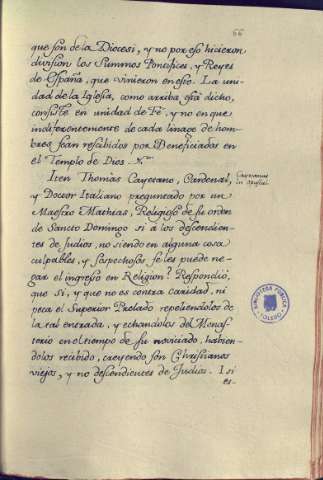 66
que són de la Diocesi, y no por eso hicieron
division los Summos Pontifices, y Reyes
de España, que vinieron en ese. La uni-
dad de la Iglesia, como arriba está dicho,
consiste en unidad de Fé, y no en que
indiferentemente de cada linage de hom-
bres sean rescibidos por Beneficiados en
el Templo de Dios.
Iten Thomas Cayetano, Cardenal,
y Doctor Italiano preguntado por un
Maestro Mathias, Religioso de su orden
de Sancto Domingo si á los descendien-
tes de Judios, no siendo en alguna cosa
culpables, y sospechosos se les puede ne-
gar el ingreso en Religion? Respondió,
que Si, y que no es contra caridad, ni
peca el Superior Prelado repeliendolos de
la tal entrada, y echandolos del Monas-
terio en el tiempo de su noviciado, habien-
dolos recibido, creyendo son Christianos
viejos, y no descendientes de Judios. I si
es-
BIBLIOTECA PÚBLICA
TOLEDO